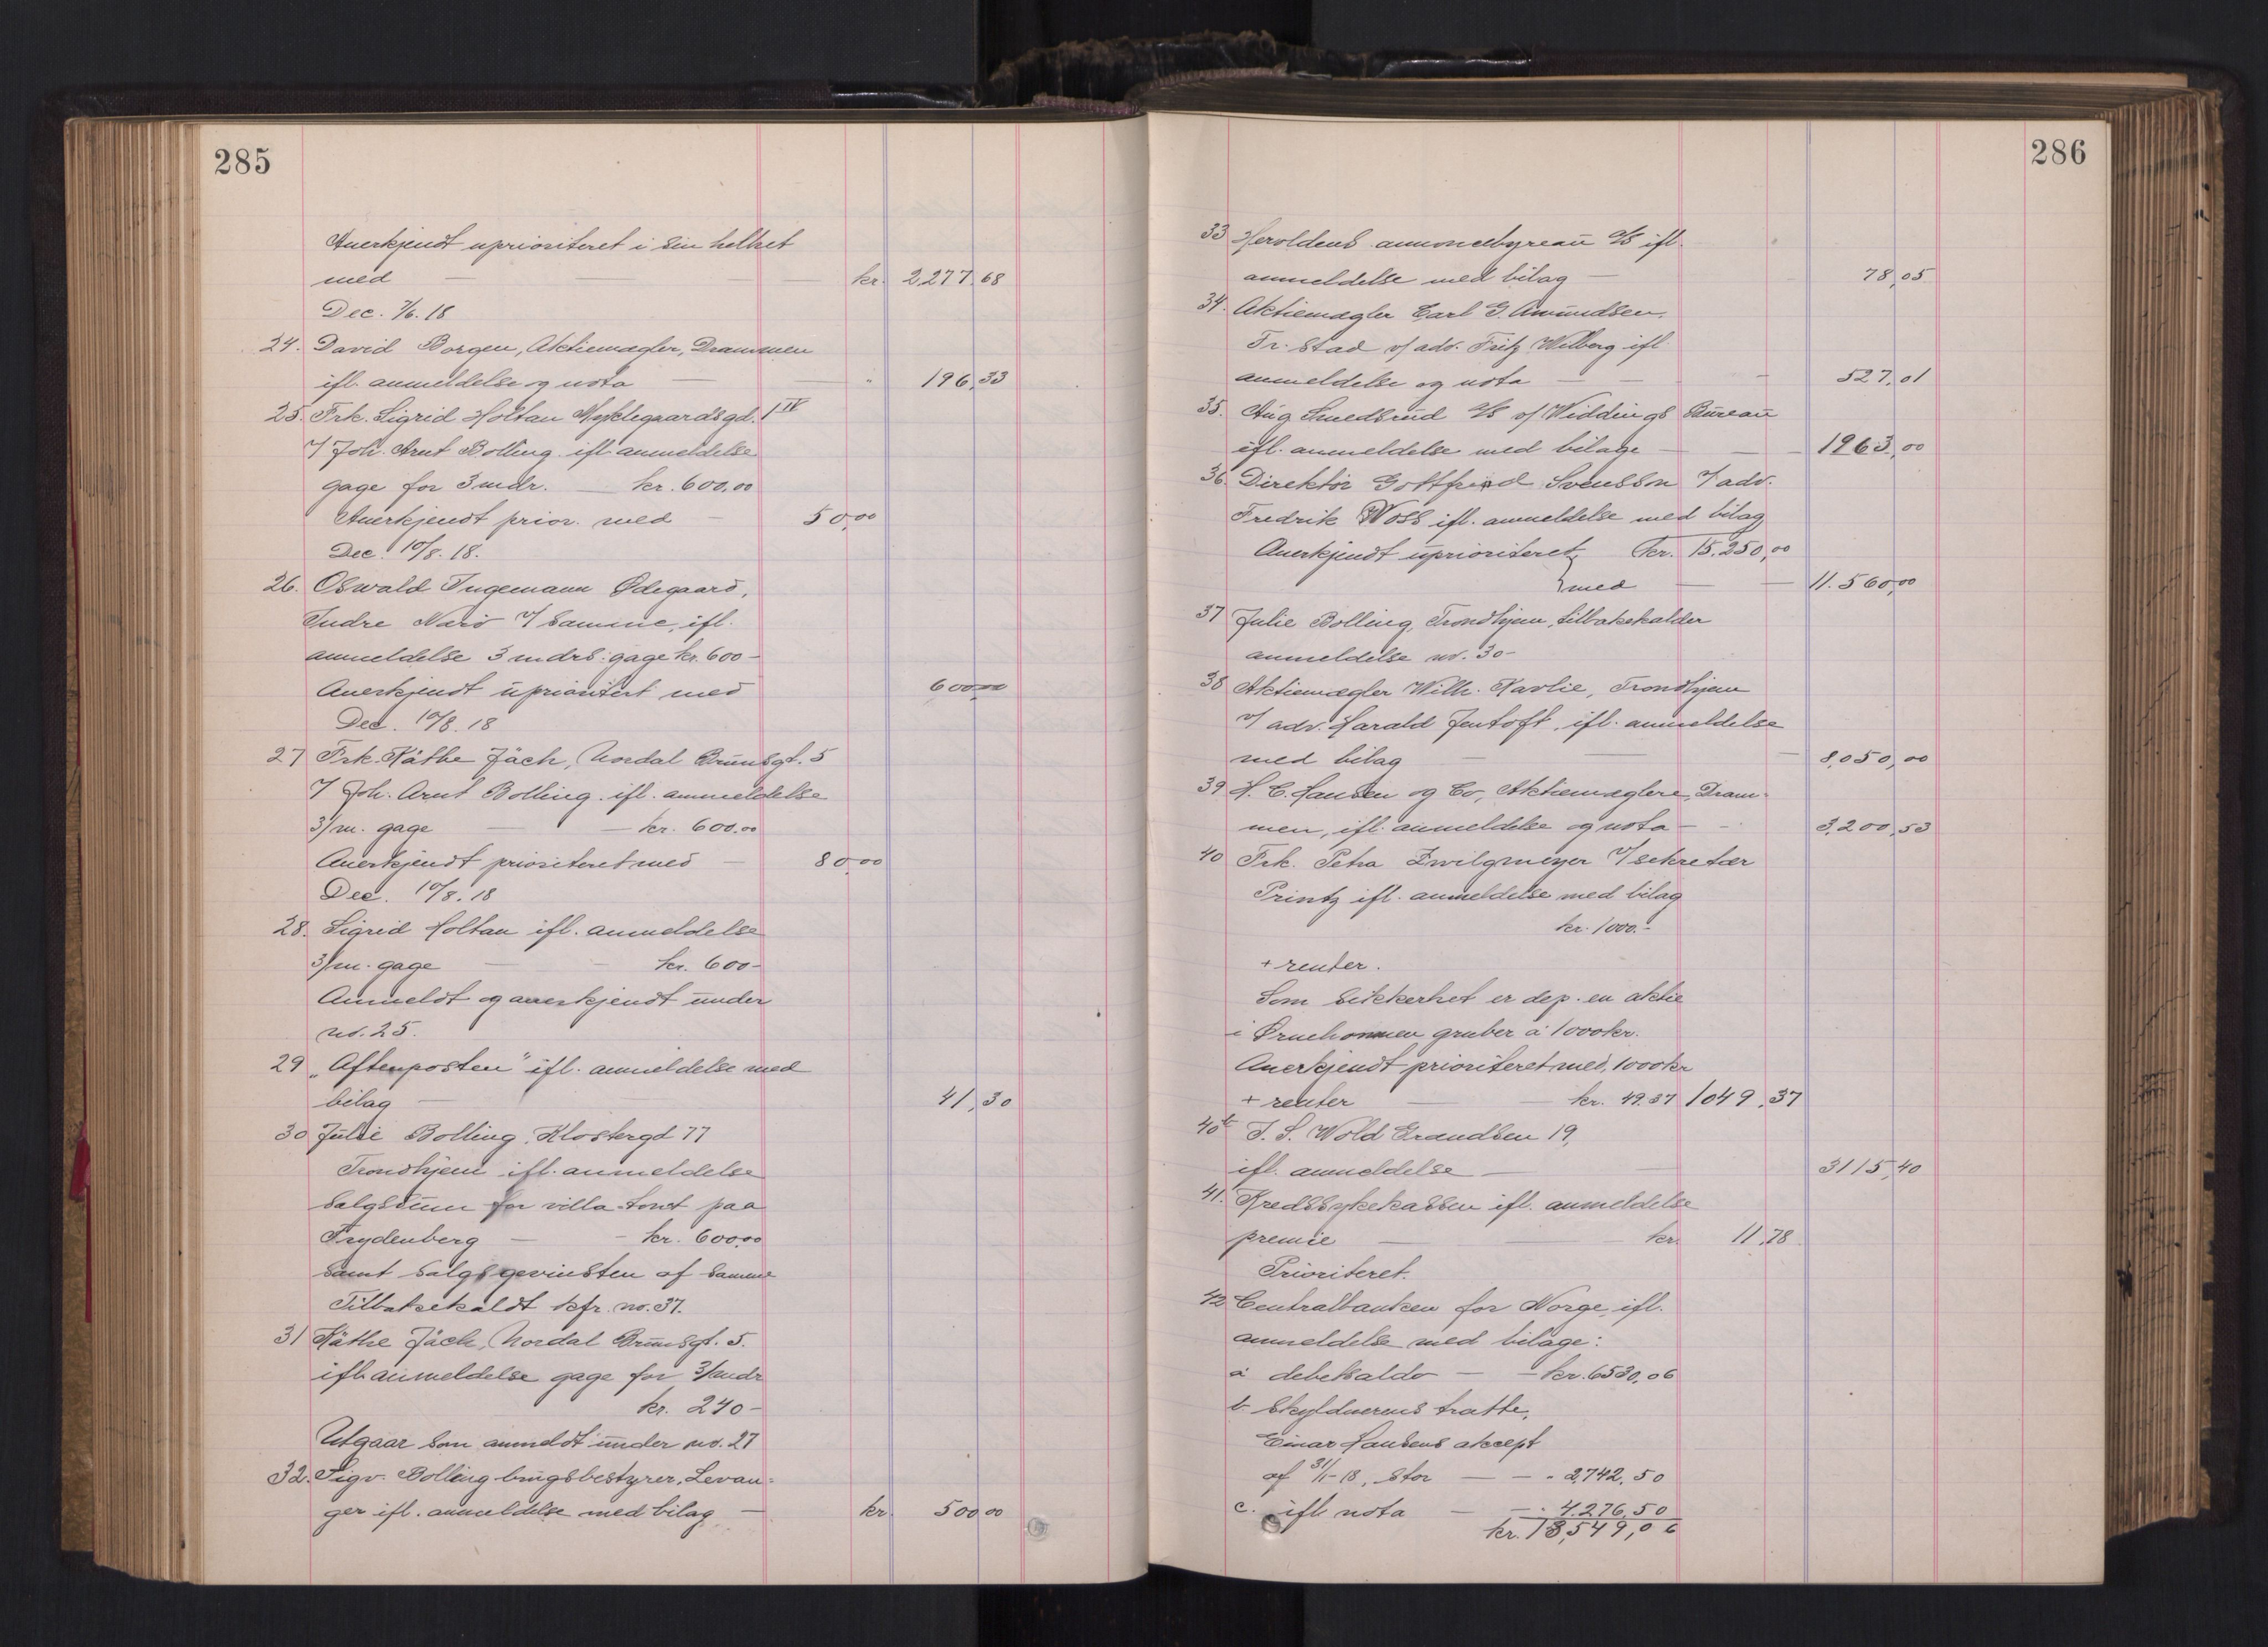 285
Anerkjendt uprioriteret i sin helhet
med — kr. 2,277,68
Dec. 7/6.18
24. David Borgen, Aktiemægler, Drammen
ifl. anmeldelse og nota — " 196,33
25. Frk. Sigrid Holtan Nyklegaardsgd. 1 IV
v/ Joh. Arnt Bolling ifl. anmeldelse
gage for 3 mdr. — kr. 600,00
Anerkjendt prior. med — 50,00
Dec. 10/8.18.
26. Oswald Ingemann Ødegaard,
Indre v/ samme, ifl.
anmeldelse 3 mdrs. gage kr. 600-
Anerkjendt uprioritert med 600,00
Dec. 10/8.18
27 Frk. Käthe Jäch, Nordal Brunsgt. 5
v/ Joh. Arnt Bolling. ifl. anmeldelse
3/m. gage — kr. 600.00
Anerkjendt prioriteret med — 80,00
Dec. 10/8.18
28. Sigrid Holtan ifl. anmeldelse
3/m. gage — kr. 600-
Anmeldt og anerkjendt under
no. 25.
29 „Aftenposten" ifl. anmeldelse med
bilag — 41,30
30 Julie Bolling, Klostergd 77
Trondhjem ifl. anmeldelse
salgssum for villa-tomt paa
Frydenberg — kr. 600,00
samt salgsgevinsten af samme
Tilbakekaldt kfr. no. 37.
31 Käthe Jäch, Nordal Brunsgt. 5.
ifl. anmeldelse gage for 3/mdr
kr. 240-
Utgaar som anmeldt under no. 27
32. Sigv. Bolling brugsbestyrer, Levan=
ger ifl. anmeldelse med bilag — kr. 500 00
286
33 Heroldens annoncebyreau A/S ifl.
anmeldelse med bilag — 78,05
34. Aktiemægler Carl G. Amundsen,
Fr. stad v/ adv. Fritz Wilberg ifl.
anmeldelse og nota — 527,01
35. Aug Smedsrud A/S v/ Widdings Bureau
ifl. anmeldelse med bilage — 1963,00
36. Direktør Gottfried Svensson v/ adv.
Fredrik Voss ifl. anmeldelse med bilag
Anerkjendt uprioriteret kr. 15.250,00
med — 11.560,00
37 Julie Bolling, Trondhjem, tilbakekalder
anmeldelse no. 30-
38 Aktiemægler Wilh. Kavlie, Trondhjem
v/ adv. Harald Jentoft, ifl. anmeldelse
med bilag — 8,050,00
39 H. C. Hansen og Co, Aktiemæglere, Dram=
men, ifl. anmeldelse og nota — 3,200,53
40 Frk. Petra Zwilgmeyer v/ sekretær
Printz ifl. anmeldelse med bilag
kr. 1000.-
+ renter.
Som sikkerhet er dep. en aktie
i gruber á 1000 kr.
Anerkjendt prioriteret med, 1000 kr
+ renter — kr. 49.37 1049,37
40b J. S. Wold Erandsen 19,
ifl. anmeldelse — 3115,40
41. Kredssykekassen ifl. anmeldelse
premie — kr. 11,78.
Prioriteret.
42 Centralbanken for Norge, ifl.
anmeldelse med bilage:
a debetsaldo — kr. 6530,06
b. Skyldnerens tratte,
Einar Hansens aksept
af 31/1-18, stor — " 2,742,50
c. ifl. nota — " 4.276,50
kr. 13,549,06